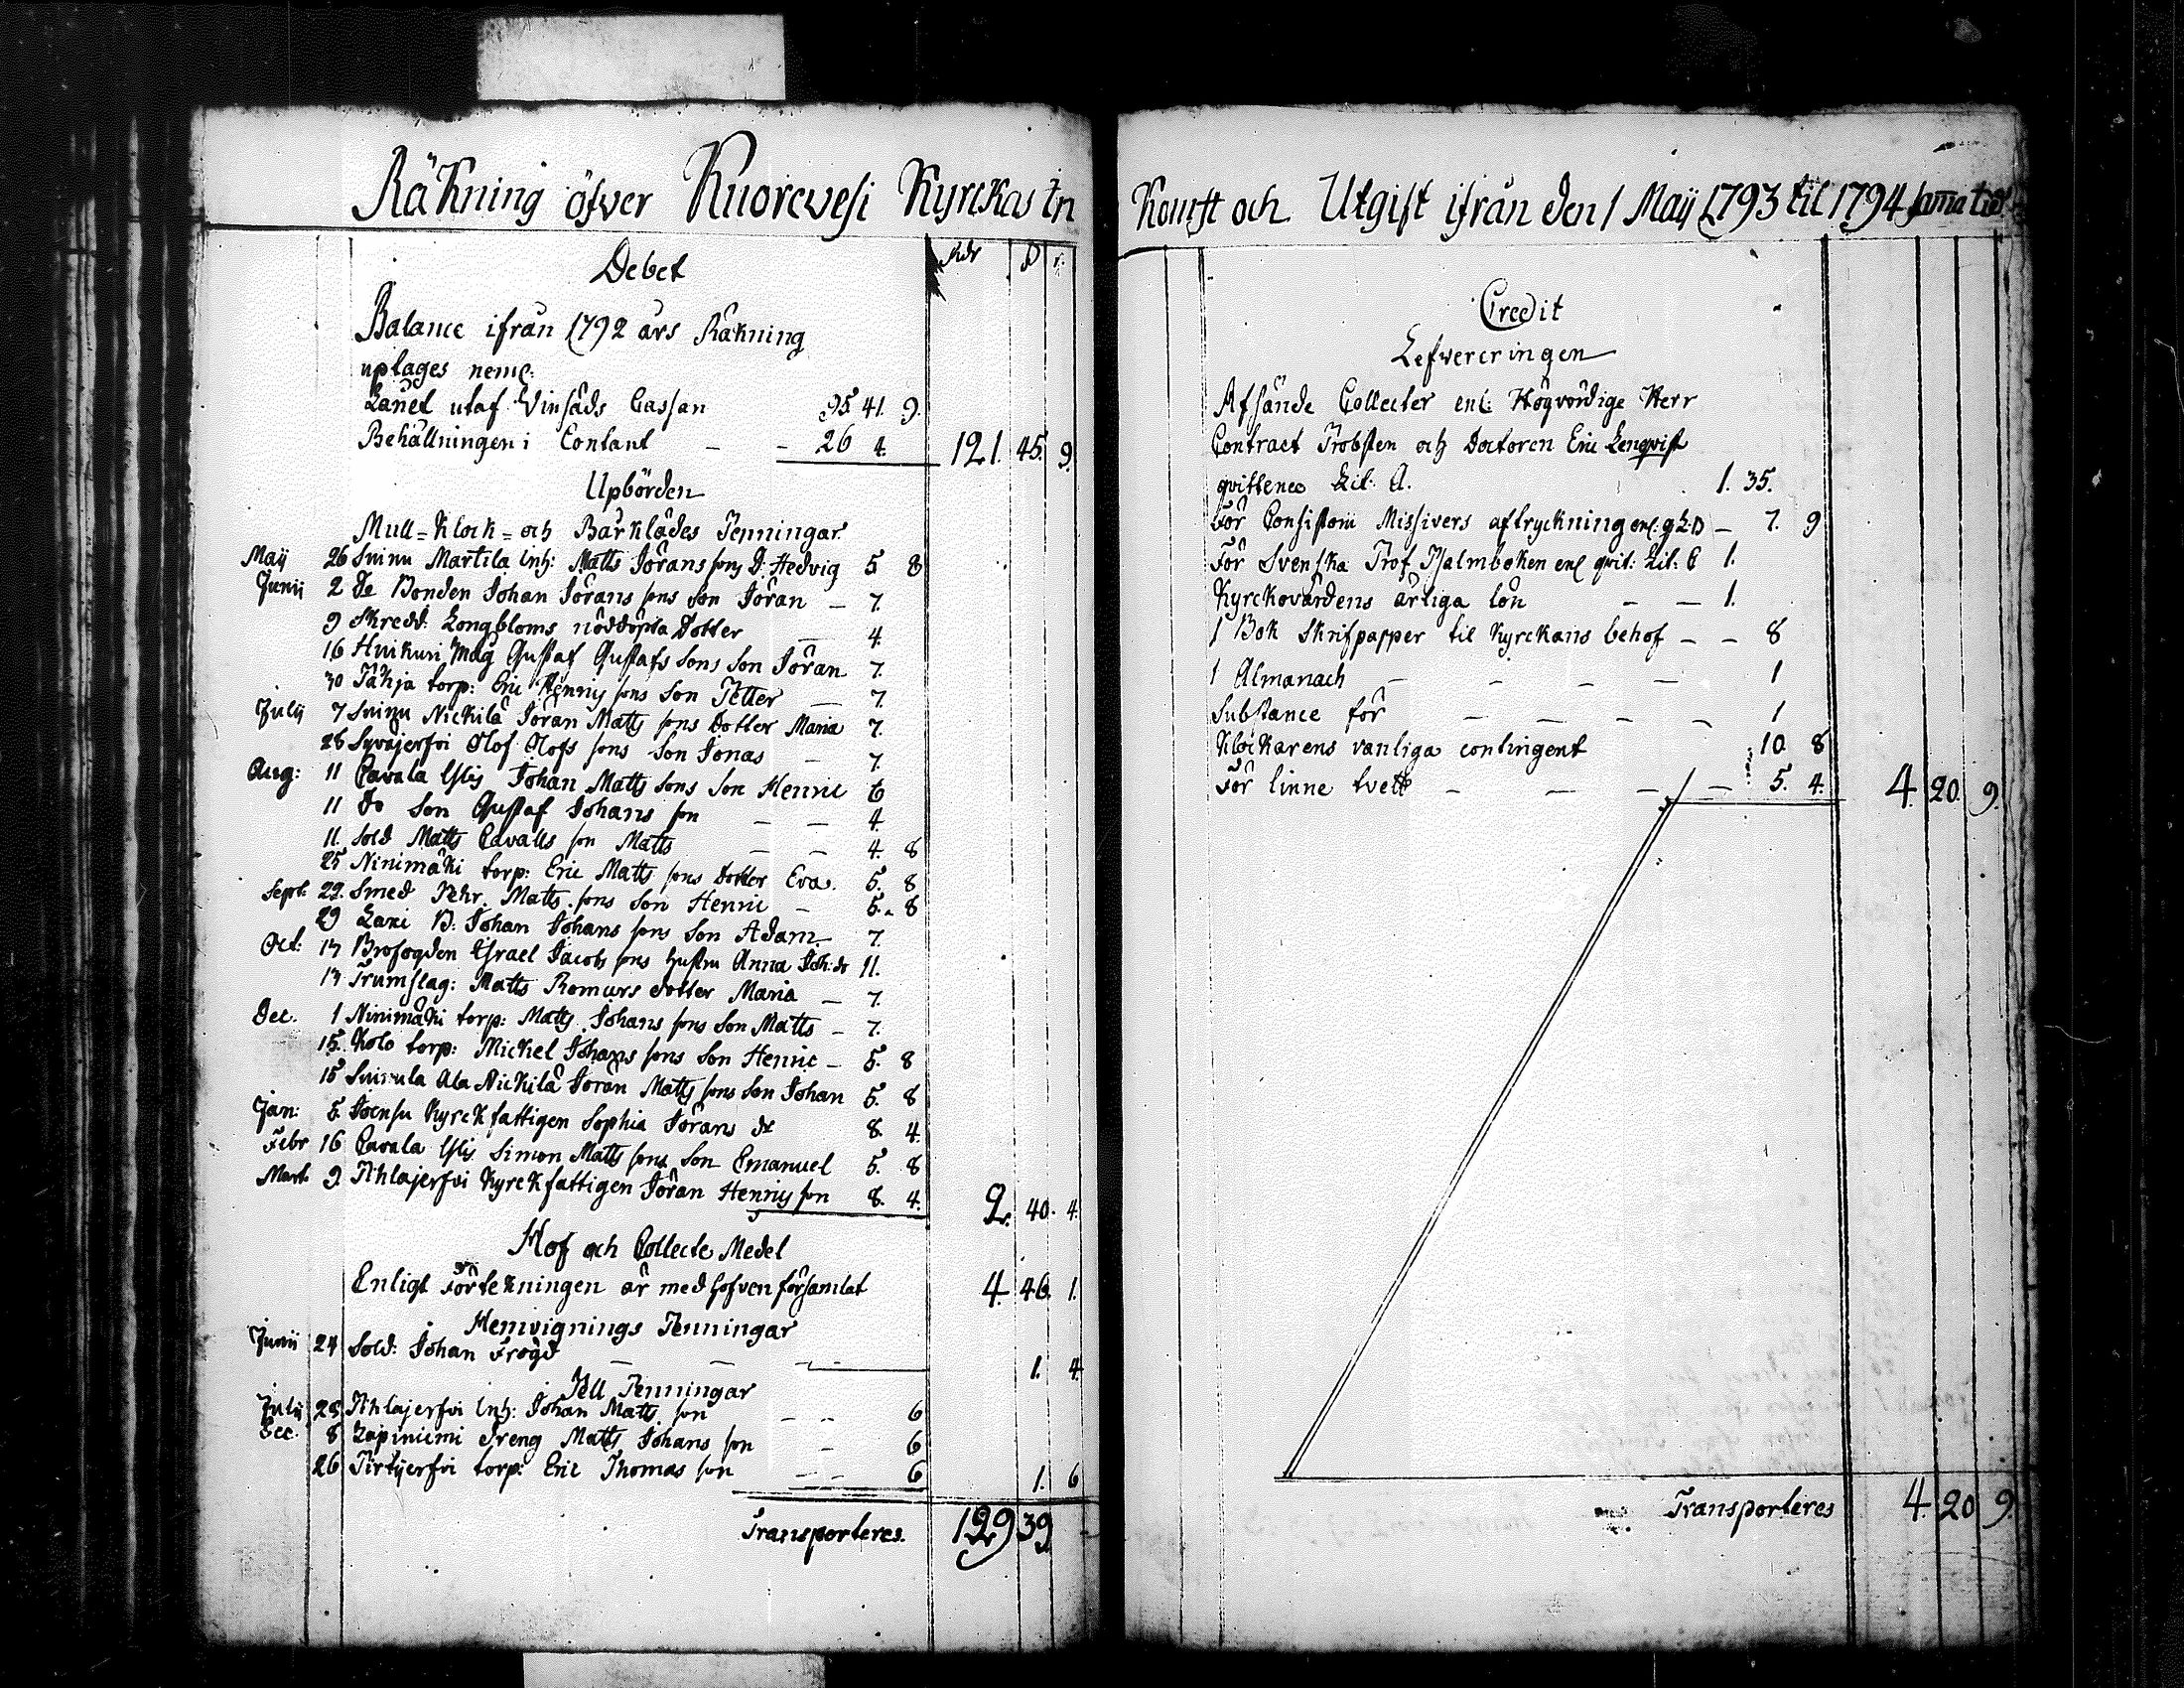 Räkning öfver Kuorevesi Kyrckas In
Debet
Rdr
Balance ifrån 1792 års Räkning
uptages neml:
Lånet utaf Vinsäds Cassan 95. 41. 9.
Behållningen i Contant — — 26 4. 121. 45. 9.
Upbörden
Mull=Klock=och Bårklädes Penningar.
Maij 26 Suinu Martila Inh: Matts Jörans sons D: Hedvig 5 8
Junii 2 De Bonden Johan Jörans sons Son Jöran — 7.
9 Skredd: Longbloms nöddöpta Dotter — 4.
16 Huikuri Måg Gustaf Gustafs Sons Son Jöran 7.
30 torp: Eric Henrics sons Son Petter — 7.
Julij 7 Suinu Nickilä Jöran Matts sons Dotter Maria 7.
28 Syväjerfvi Olof Olofs sons Son Jonas — 7.
Aug: 11 Pavala Johan Matts Sons Son Henric 6
11 Do Son Gustaf Johans son — — 4.
11. Sold Matts Cavalls son Matts — — 4. 8
25 Ninimäki torp: Eric Matts sons Dotter Eva. 5. 8
Sept: 22. Smed Pehr Matts sons Son Henric — 5. 8
29 Lari B: Johan Johans sons Son Adam — 7.
Oct: 13 Brofogden Israel Jacobs sons hustru Anna Joh: dr 11.
13 Trumslag: Matts Romurs dotter Maria — 7.
Dec. 1 Ninimäki torp: Matts Johans sons Son Matts — 7.
15. Kolo torp: Mickel Johans sons Son Henric — 5. 8
15 Suinula Ala Nickilä Jöran Matts sons Son Johan 5. 8
Jan: 5. Joensu Kyrckfattigen Sophia Jörans dr 8. 4.
Febr 16 Pavala Simon Matts sons Son Emanuel 5. 8
Mart. 9 Pihlajerfvi Kyrckfattigen Jöran Henrics son 8. 4. 2. 40. 4.
Hof och Collecte Medel
Enligt Förtekningen är med hofven församlat 4. 46. 1.
Hemvignings Penningar
Junii 24 Sold: Johan Frögd — — — 1. 4
Pell Penningar
Julij 28 Pihlajerfvi Inh: Johan Matts son — — 6
Dec. 8 Lapiniemi Dreng Matts Johans son — 6
26 Pirtijerfvi torp: Eric Thomas son — — 6 1. 6
Transporteres. 129 39
Komst och Utgift ifrån den 1 Maij 1793 til 1794 samma tid.
Credit
Lefvereringen
Afsände Collecter enl: Högvördige Herr
Contract Probsten och Doctoren Eric Lenqvist
qvittence Lit: A. 1. 35.
För Consistorii Missivers aftryckning enl: q L: B — 7. 9
För Svenska Prof Psalmboken enl qvit: Lit: C 1.
Kyrckovärdens årliga lön — — 1.
1 Bok Skrifpapper til Kyrckans behof — — 8
1 Almanach — — — — 1
Substance för — — — — 1
Klockarens vanliga contingent 10. 8
För linne tvett — — — — 5. 4. 4. 20. 9.
Transporteres 4. 20 9.